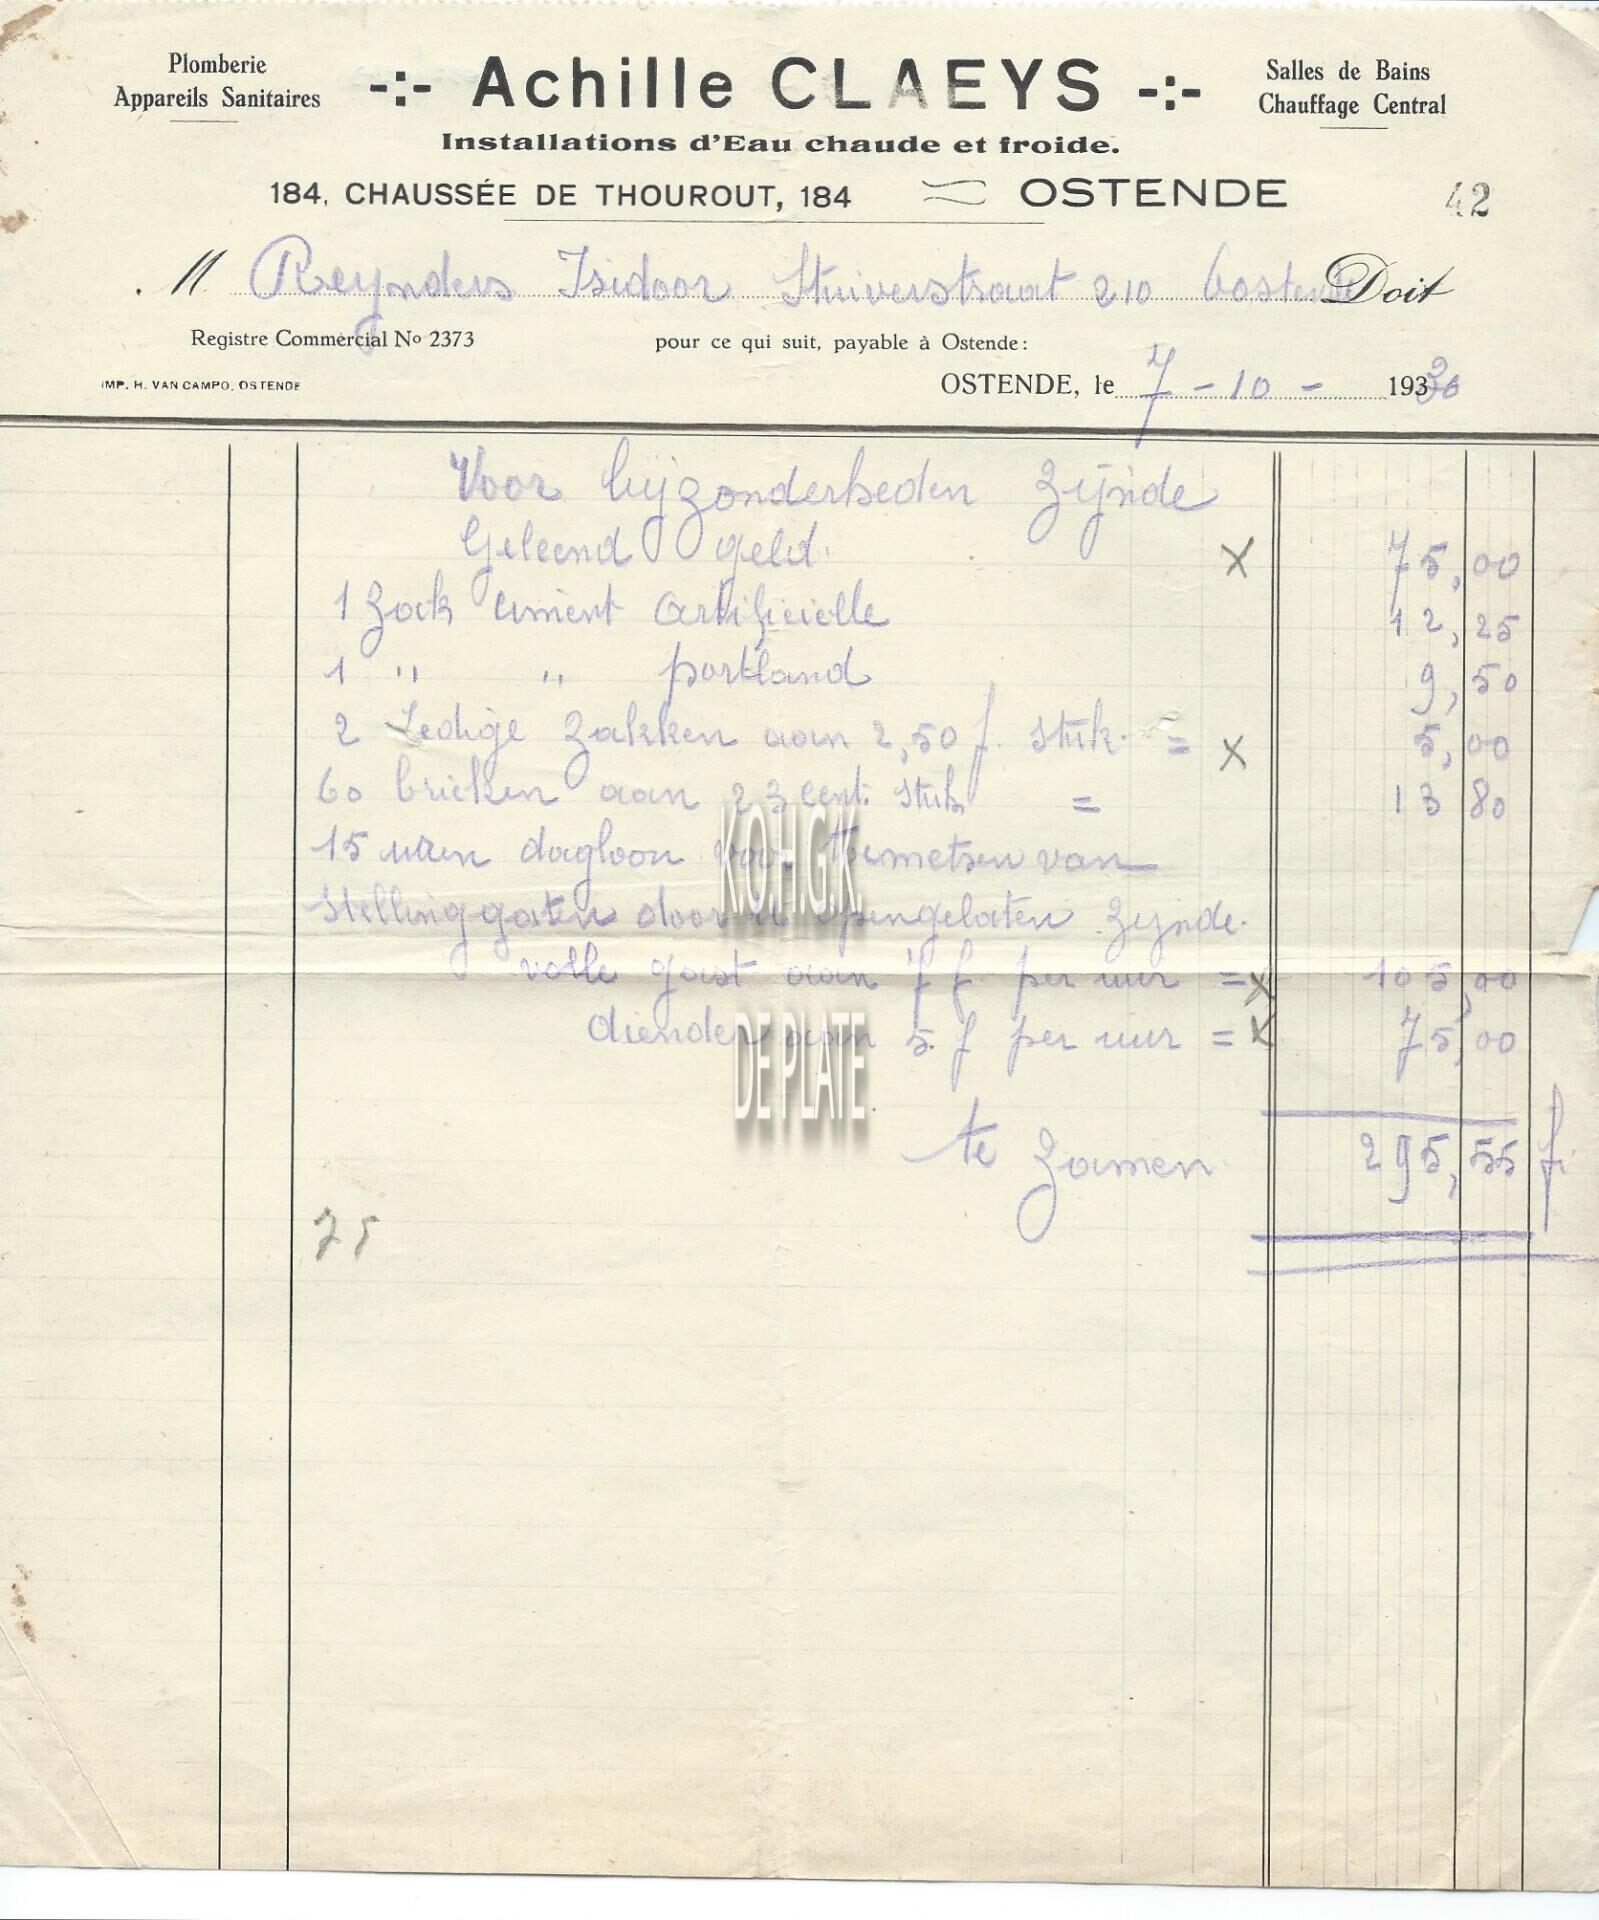 Plomberie
Appareils Sanitaires
-:- Achille CLAEYS -:-
Salles de Bains
Chauffage Central
Installations d'Eau chaude et froide.
184, CHAUSSÉE DE THOUROUT, 184 OSTENDE
42
M Reynders Isidoor Stuiverstraat 210 Oostende Doit
Registre Commercial No 2373 pour ce qui suit, payable à Ostende:
IMP. H. VAN CAMPO, OSTENDE
OSTENDE, le 7 - 10 - 193
Voor bijzonderheden zijnde
Geleend geld. X 75,00
1 Zack ciment Artificielle 12,25
1 " " portland 9,50
2 Ledige zakken aan 2,50 f. stuk. = X 5,00
60 bricken aan 23 cent. stuk = 13 80
15 uren dagloon voor toemetsen van
stellinggaten door u opengelaten zijnde.
volle gast aan 7 f. per uur = X 105,00
diender aan 5. f per uur = X 75,00
te zamen 295,55 f.
75
K.O.H.G.K.
DE PLATE